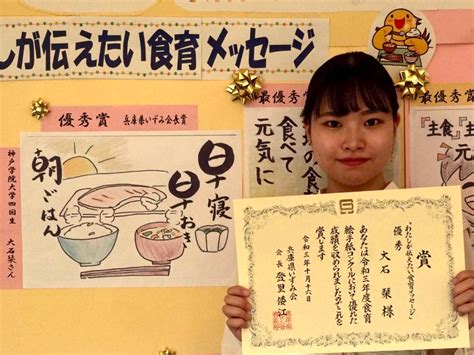 しが伝えたい食育メッセージ
優秀賞 兵庫県いずみ会長賞
神戸学院大学四回生 大石栞さん
早寝
早おき
朝ごはん
最優秀
食べて
元気に
の食
"主食"
賞
"わたしが伝えたい食育メッセージ"
優秀
大石 栞 様
あなたは令和三年度食育
絵手紙コンクールにおいて優れた
成績を収められましたのでこれを
賞します
令和三年十月十六日
兵庫県いずみ会
会長 登里倭江